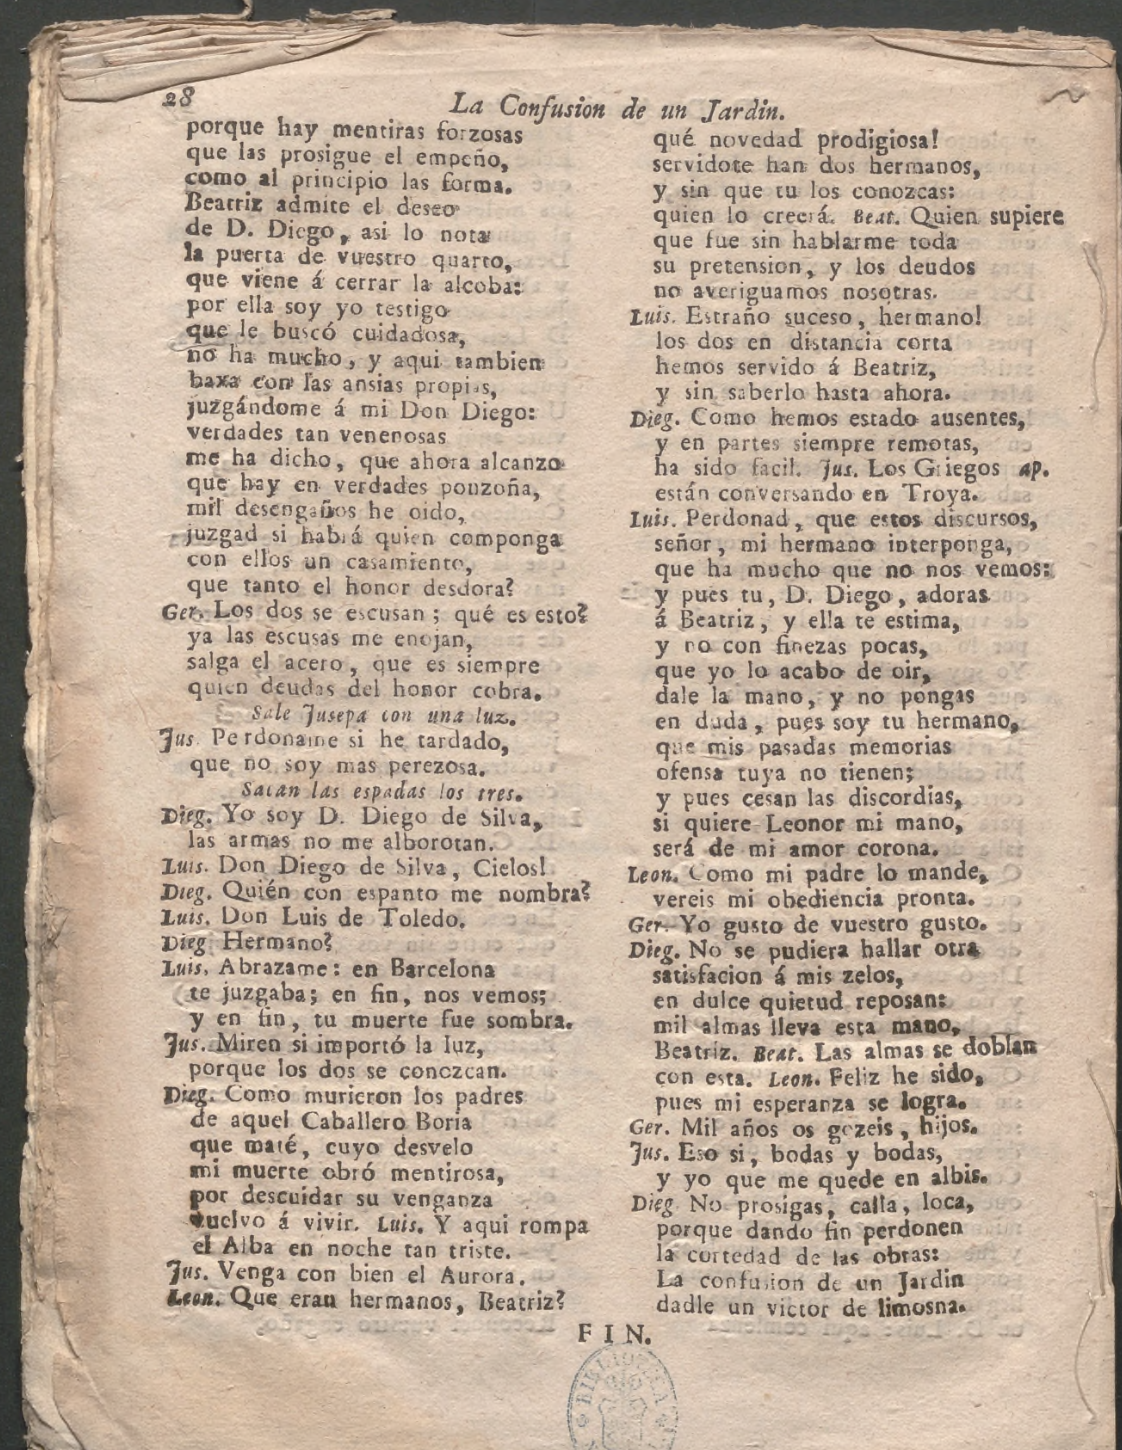 28
La Confusion de un Jardin.
porque hay mentiras forzosas
que las prosigue el empeño,
como al principio las forma.
Beatriz admite el deseo
de D. Diego, asi lo nota
la puerta de vuestro quarto,
que viene á cerrar la alcoba:
por ella soy yo testigo
que le buscó cuidadosa,
no ha mucho, y aqui tambien
baxa con las ansias propias,
juzgándome á mi Don Diego:
verdades tan venenosas
me ha dicho, que ahora alcanzo
que hay en verdades ponzoña,
mil desengaños he oido,
juzgad si habrá quien componga
con ellos un casamiento,
que tanto el honor desdora?
Ger. Los dos se escusan; qué es esto?
ya las escusas me enojan,
salga el acero, que es siempre
quien deudas del honor cobra.
Sale Jusepa con una luz.
Jus. Perdoname si he tardado,
que no soy mas perezosa.
Sacan las espadas los tres.
Dieg. Yo soy D. Diego de Silva,
las armas no me alborotan.
Luis. Don Diego de Silva, Cielos!
Dieg. Quién con espanto me nombra?
Luis. Don Luis de Toledo.
Dieg. Hermano?
Luis. Abrazame: en Barcelona
te juzgaba; en fin, nos vemos;
y en fin, tu muerte fue sombra.
Jus. Miren si importó la luz,
porque los dos se conozcan.
Dieg. Como murieron los padres
de aquel Caballero Boria
que maté, cuyo desvelo
mi muerte obró mentirosa,
por descuidar su venganza
vuelvo á vivir. Luis. Y aqui rompa
el Alba en noche tan triste.
Jus. Venga con bien el Aurora.
Leon. Que eran hermanos, Beatriz?
qué novedad prodigiosa!
servidote han dos hermanos,
y sin que tu los conozcas:
quien lo creerá. Beat. Quien supiere
que fue sin hablarme toda
su pretension, y los deudos
no averiguamos nosotras.
Luis. Estraño suceso, hermano!
los dos en distancia corta
hemos servido á Beatriz,
y sin saberlo hasta ahora.
Dieg. Como hemos estado ausentes,
y en partes siempre remotas,
ha sido facil. Jus. Los Griegos ap.
están conversando en Troya.
Luis. Perdonad, que estos discursos,
señor, mi hermano interponga,
que ha mucho que no nos vemos:
y pues tu, D. Diego, adoras
á Beatriz, y ella te estima,
y no con finezas pocas,
que yo lo acabo de oir,
dale la mano, y no pongas
en duda, pues soy tu hermano,
que mis pasadas memorias
ofensa tuya no tienen;
y pues cesan las discordias,
si quiere Leonor mi mano,
será de mi amor corona.
Leon. Como mi padre lo mande,
vereis mi obediencia pronta.
Ger. Yo gusto de vuestro gusto.
Dieg. No se pudiera hallar otra
satisfacion á mis zelos,
en dulce quietud reposan:
mil almas lleva esta mano,
Beatriz. Beat. Las almas se doblan
con esta. Leon. Feliz he sido,
pues mi esperanza se logra.
Ger. Mil años os gozeis, hijos.
Jus. Eso si, bodas y bodas,
y yo que me quede en albis.
Dieg No prosigas, calla, loca,
porque dando fin perdonen
la cortedad de las obras:
La confusion de un Jardin
dadle un victor de limosna.
FIN.
BIBLIOTECA